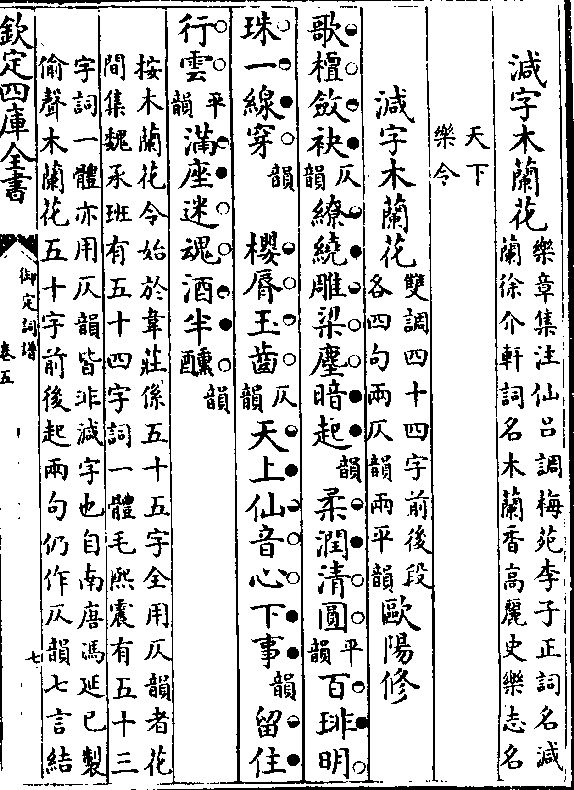 減字木蘭花樂章集注仙呂調梅苑李子正詞名減
蘭徐介軒詞名木蘭香高麗史樂志名
天下
樂令
減字木蘭花雙調四十四字前後段
各四句兩仄韻兩平韻歐陽修
歌檀斂袂仄韻繚繞雕梁塵暗起韻柔潤清圓平韻百琲明
珠一線穿韻 櫻脣玉齒仄韻天上仙音心下事韻留住
行雲平韻滿座迷魂酒半醺韻
按木蘭花令始於韋莊係五十五字全用仄韻者花
間集魏承班有五十四字詞一體毛熙震有五十三
字詞一體亦用仄韻皆非減字也自南唐馮延巳製
偷聲木蘭花五十字前後起兩句仍作仄韻七言結
欽定四庫全書
御定詞譜
卷五
七